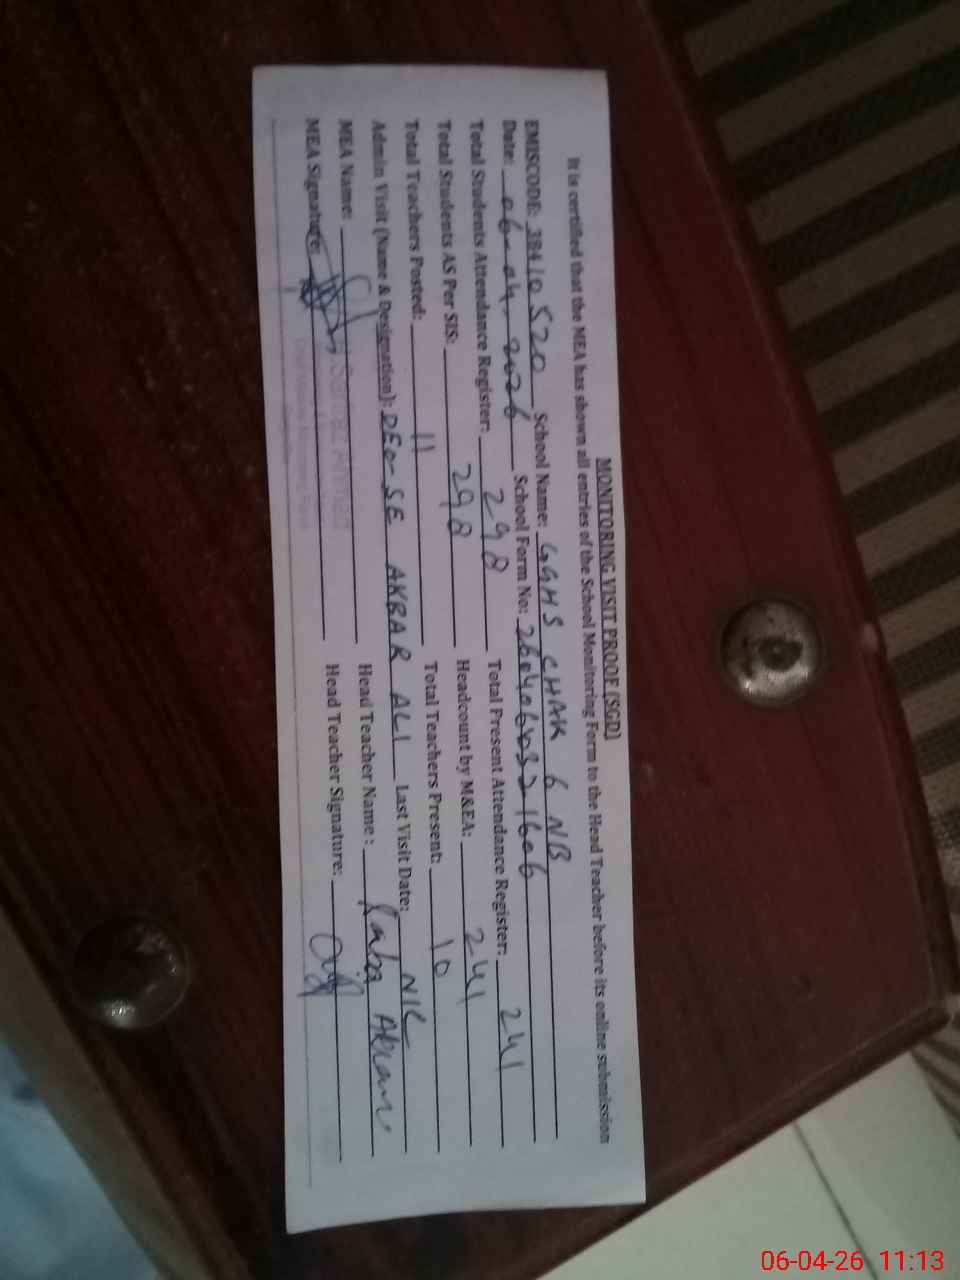 MONITORING VISIT PROOF [SGD]
It is certified that the MEA has shown all entries of the School Monitoring Form to the Head Teacher before its online submission
EMISCODE: 38410520 School Name: GGHS CHAK 6 NB
Date: 06-04-2026 School Form No: 2604060321606
Total Students Attendance Register: 298 Total Present Attendance Register: 241
Total Students AS Per SIS: 298 Headcount by M&EA: 241
Total Teachers Posted: 11 Total Teachers Present: 10
Admin Visit (Name & Designation): DEO-SE AKBAR ALI Last Visit Date: NIL
MEA Name: Sarfraz Ahmed Head Teacher Name: Akram
MEA Signature: Head Teacher Signature:
06-04-26 11:13